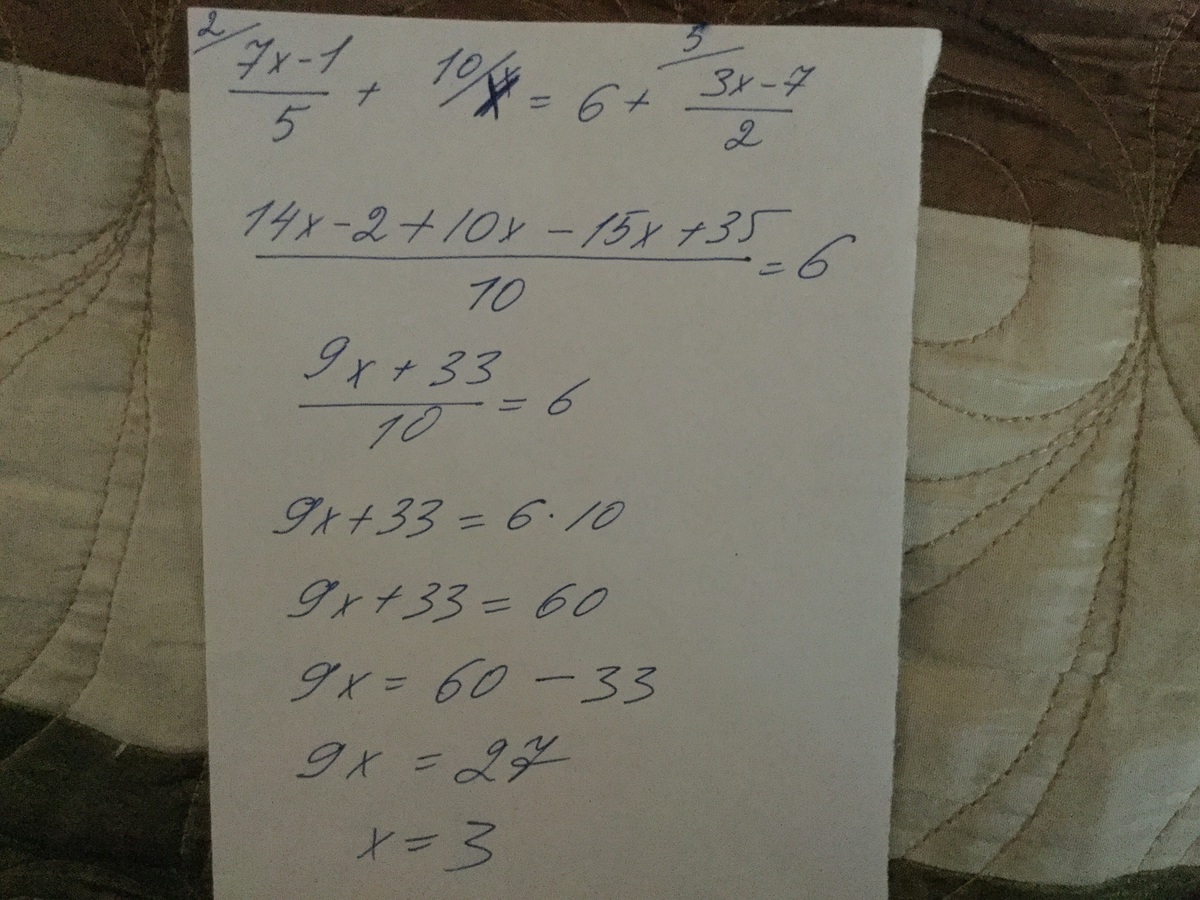 2/ (7x-1)/5 + 10/ x = 6 + 5/ (3x-7)/2
(14x-2+10x-15x+35)/10 = 6
(9x+33)/10 = 6
9x+33 = 6·10
9x+33 = 60
9x = 60-33
9x = 27
x = 3